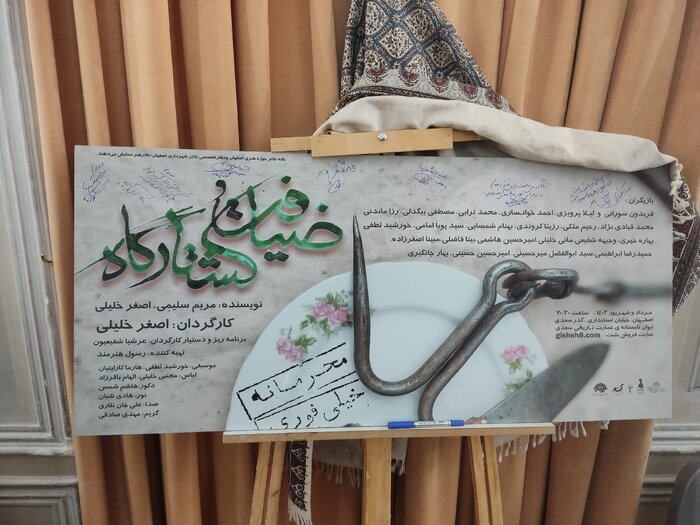 خانه تئاتر حوزه هنری اصفهان و دفتر تخصصی تئاتر شهرداری اصفهان تالار هنر نمایش می‌دهند
ضیافت
کشتارگاه
نویسنده: مریم سلیمی، اصغر خلیلی
کارگردان: اصغر خلیلی
برنامه ریز و دستیار کارگردان: عرشیا شفیعیون
تهیه کننده: رسول هنرمند
موسیقی: خورشید لطفی، هارما کاراپتیان
لباس: مجتبی خلیلی، الهام باقرزاد
دکور: هاشم شمس
نور: هادی شبان
صدا: علی جان نثاری
گریم: مهدی صادقی
بازیگران:
فریدون سورانی و لیلا پرویزی، احمد خوانساری، محمد ترابی، مصطفی بیگدلی، رزا ماندنی
محمد قبادی نژاد، رحیم ملکی، رزیتا کروندی، بهنام شمسایی، سید پویا امامی، خورشید لطفی
بهاره خیری، وجیهه شفیعی، مانی خلیلی، امیرحسین هاشمی، بیتا فاضلی، مبینا اصغرزاده،
حمیدرضا ابراهیمی، سید ابوالفضل میرحسینی، امیرحسین حسینی، بهار جانگیری
مرداد و شهریور ۱۴۰۳ ساعت ۲۰:۳۰
اصفهان، خیابان استانداری، گذر سعدی
ایوان تابستانه ی عمارت تاریخی سعدی
سایت فروش بلیت:
gisheh8.com
محرمانه
خیلی فوری